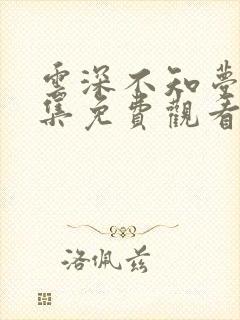 雲深不知夢
集免費觀看
洛佩兹